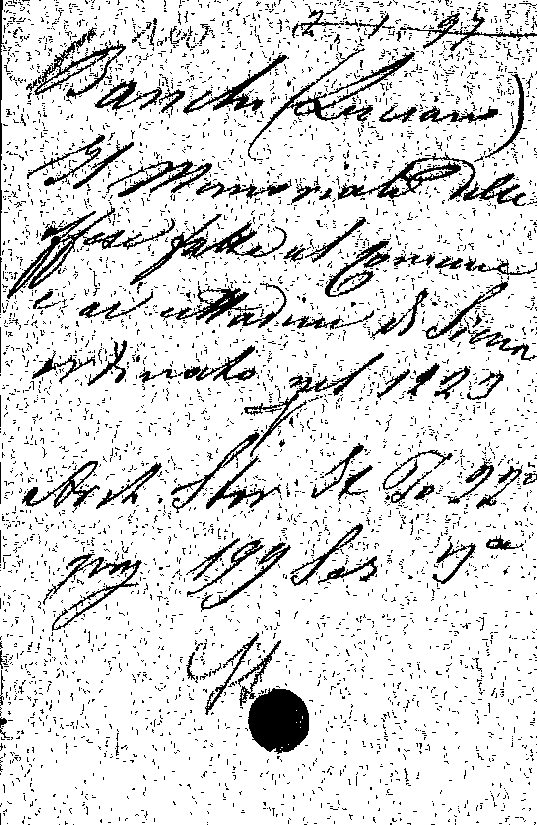 2. 1. 97
Banchi (Luciano)
Il Memoriale delle
offese fatte al Comune
e ai cittadini di Siena
ordinato nel 1223
Arch. Stor. It To 22º
pag. 199 Ser. 3ª